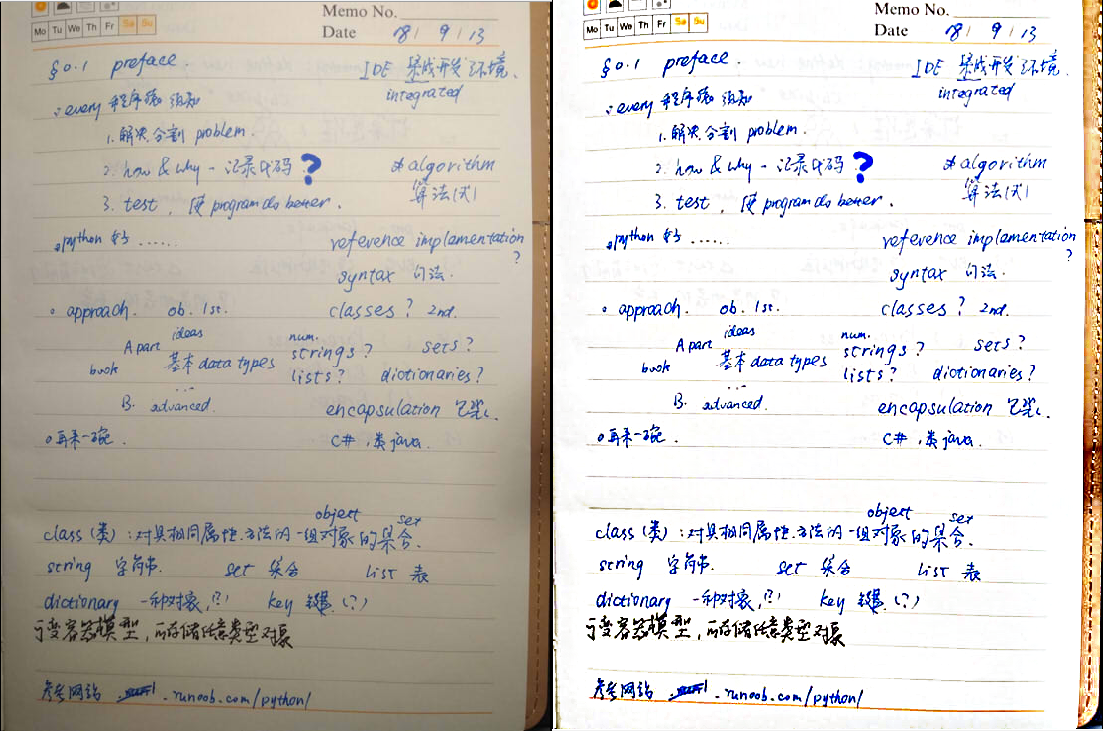 Memo No.
Mo Tu We Th Fr Sa Su
Date 18 / 9 / 13
§0.1 preface.
IDE 集成开发环境.
integrated
every 程序猿须知
1. 解决.分割 problem.
2. how & why - 记录代码 ?
* algorithm
算法(式)
3. test, 使 program do better.
python 好 ......
reference implementation
?
syntax 句法.
approach. ob. 1st.
classes? 2nd.
ideas
A part 基本 data types
num.
strings?
sets?
book
lists?
dictionaries?
...
B. advanced.
encapsulation
再来一碗.
C#, 类 java.
object
set
class (类): 对具相同属性.方法的一组对象的集合.
string 字符串. set 集合 list 表
dictionary 一种对象, (?) key 键. (?)
可变容器模型, 可存储任意类型对象
参考网站 . runoob.com/python/
Memo No.
Mo Tu We Th Fr Sa Su
Date 18 / 9 / 13
§0.1 preface.
IDE 集成开发环境.
integrated
every 程序猿须知
1. 解决.分割 problem.
2. how & why - 记录代码 ?
* algorithm
算法(式)
3. test, 使 program do better.
python 好 ......
reference implementation
?
syntax 句法.
approach. ob. 1st.
classes? 2nd.
ideas
A part 基本 data types
num.
strings?
sets?
book
lists?
dictionaries?
...
B. advanced.
encapsulation
再来一碗.
C#, 类 java.
object
set
class (类): 对具相同属性.方法的一组对象的集合.
string 字符串. set 集合 list 表
dictionary 一种对象, (?) key 键. (?)
可变容器模型, 可存储任意类型对象
参考网站 . runoob.com/python/